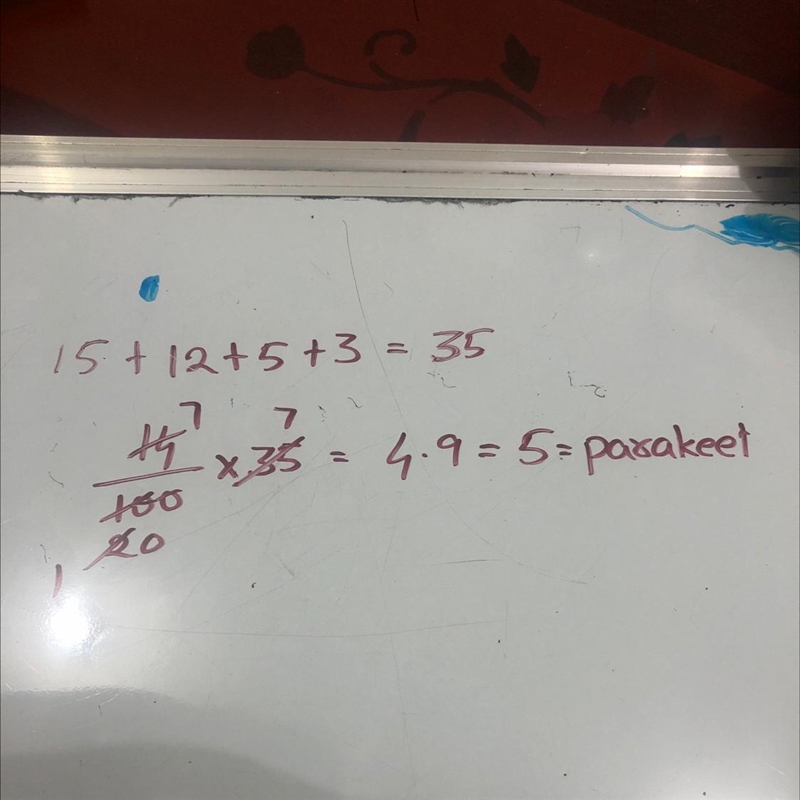 15 + 12 + 5 + 3 = 35
7 7
14/100 × 35 = 4.9 = 5 = parakeet
20
1